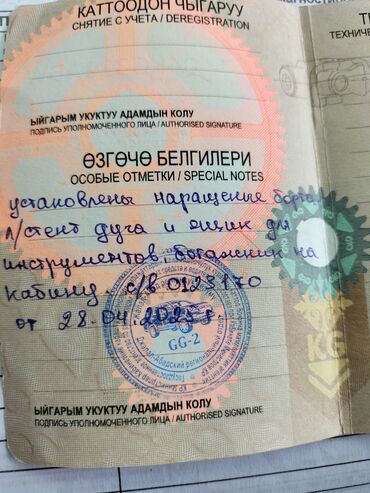 КАТТООДОН ЧЫГАРУУ
СНЯТИЕ С УЧЕТА / DEREGISTRATION
ЫЙГАРЫМ УКУКТУУ АДАМДЫН КОЛУ
ПОДПИСЬ УПОЛНОМОЧЕННОГО ЛИЦА / AUTHORISED SIGNATURE
ӨЗГӨЧӨ БЕЛГИЛЕРИ
ОСОБЫЕ ОТМЕТКИ / SPECIAL NOTES
установлены наращение борта
п/тент дуга и ящик для
инструментов, богажник на
кабину с/в 0123170
от 28.04.2025г
GG-2
Джалал-Абадский региональный отдел
ЫЙГАРЫМ УКУКТУУ АДАМДЫН КОЛУ
ПОДПИСЬ УПОЛНОМОЧЕННОГО ЛИЦА / AUTHORISED SIGNATURE
KG